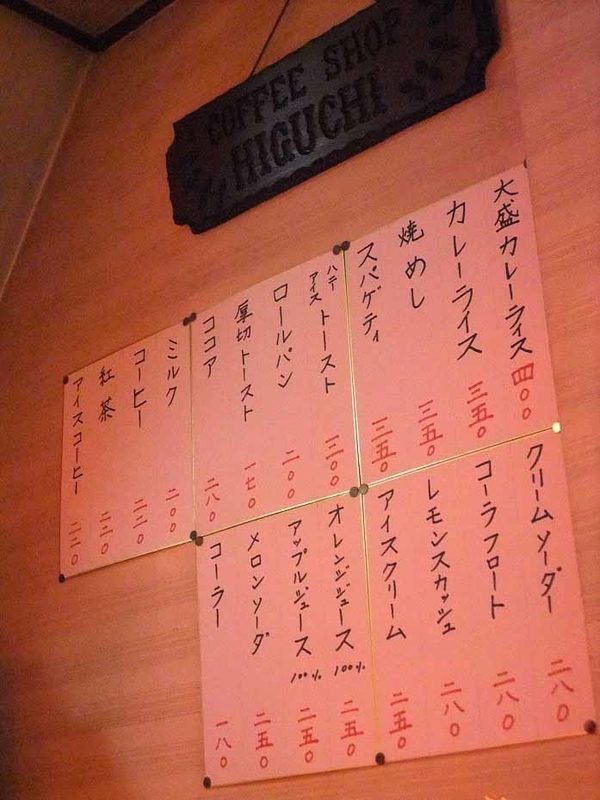 COFFEE SHOP
HIGUCHI
大盛カレーライス 四〇〇
カレーライス 三五〇
焼めし 三五〇
スパゲティ 三五〇
ハニーアイストースト 三〇〇
ロールパン 二〇〇
厚切トースト 一七〇
ココア 二八〇
ミルク 二〇〇
コーヒー 二二〇
紅茶 二二〇
アイスコーヒー 二二〇
クリームソーダー 二八〇
コーラフロート 二八〇
レモンスカッシュ 二八〇
アイスクリーム 二五〇
オレンジジュース 100% 二五〇
アップルジュース 100% 二五〇
メロンソーダ 二五〇
コーラー 一八〇